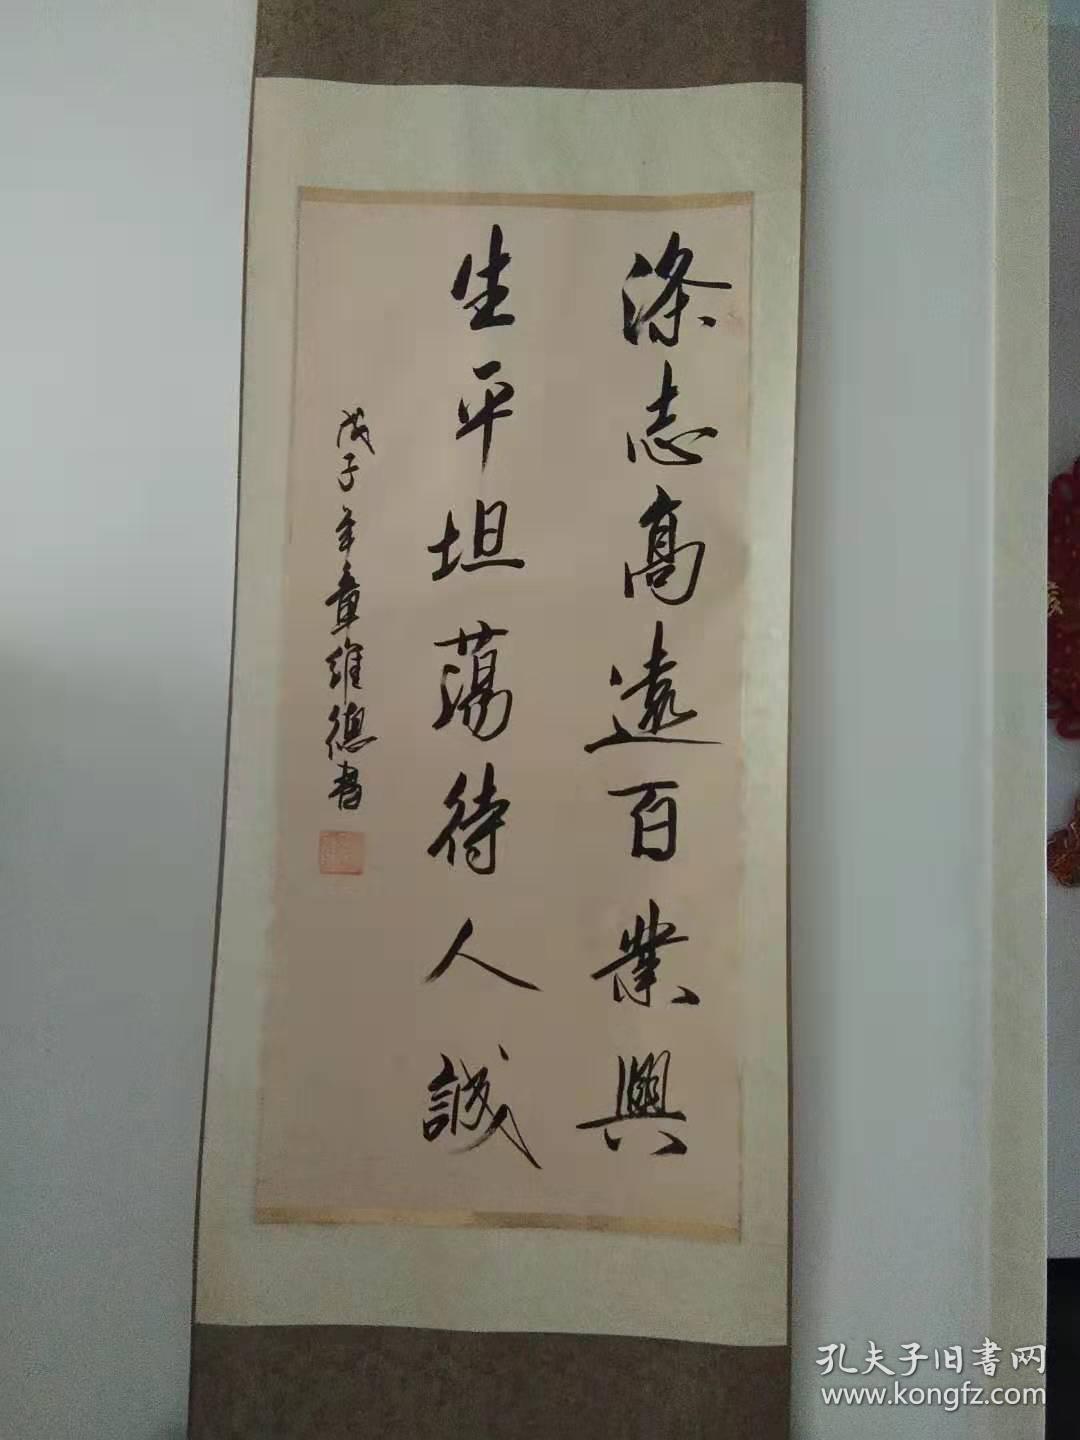 涤志高遠百業興
生平坦蕩待人誠
戊子年章維德書
孔夫子旧書网
www.kongfz.com